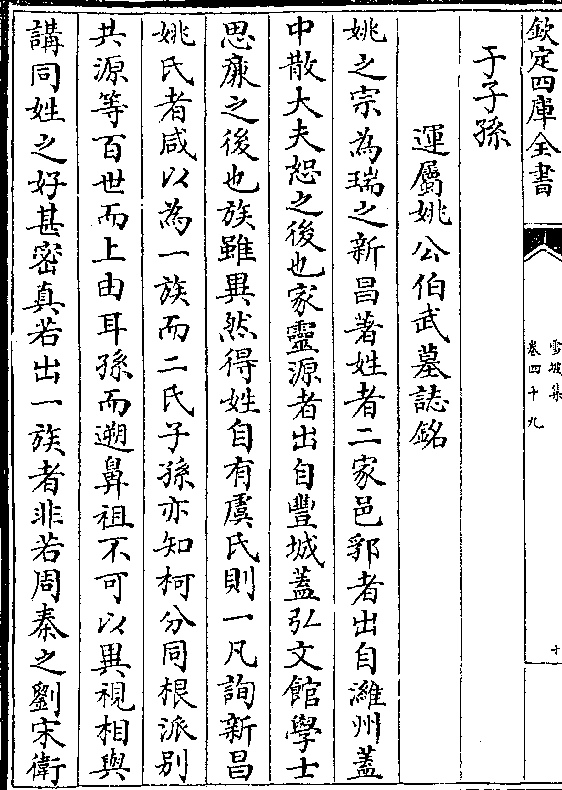 欽定四庫全書
雪坡集
卷四十九
十
于子孫
運屬姚公伯武墓誌銘
姚之宗為瑞之新昌著姓者二家邑郛者出自濰州蓋
中散大夫恕之後也家靈源者出自豐城蓋弘文館學士
思亷之後也族雖異然得姓自有虞氏則一凡詢新昌
姚氏者咸以為一族而二氏子孫亦知柯分同根派别
共源等百世而上由耳孫而遡鼻祖不可以異視相與
講同姓之好甚密真若出一族者非若周秦之劉宋衛